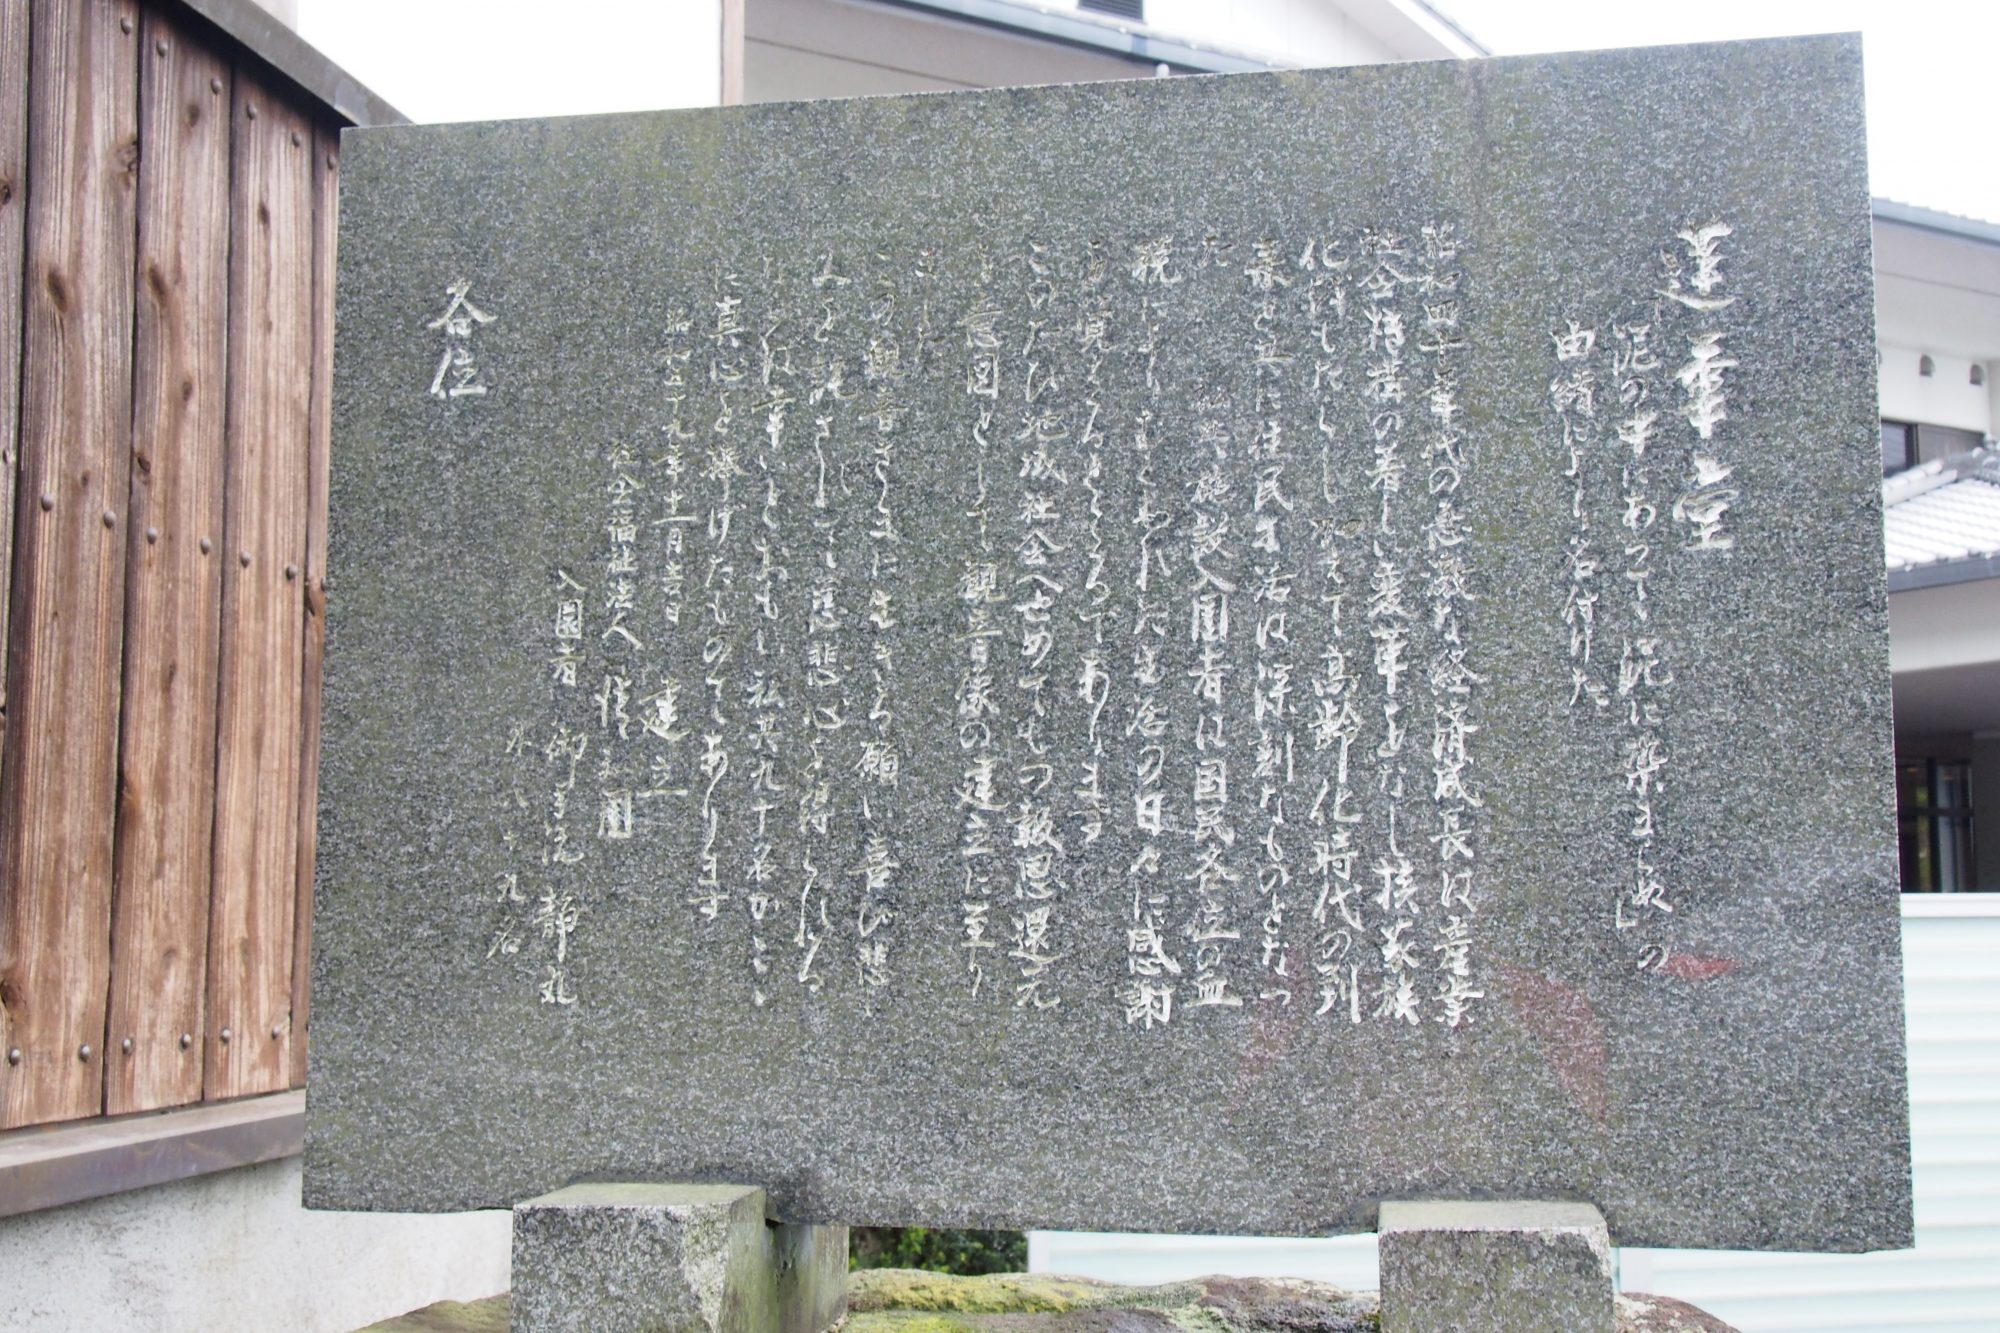 蓮華堂
泥の中にあって泥に染まらぬ」の
由緒により名付けた
昭和四十年代の急激な経済成長は産業
社会構造の著しい変革をなし核家族
化現象をもたらし加えて高齢化時代の到
来と共に住民生活は深刻なものとなっ
た 私共施設入園者は国民各位の血
税によりまもられた生活の日々に感謝
るところであります
このたび地域社会へせめてもの報恩還元
を意図として観音像の建立に至り
ました
この観音さまに生きる願い喜び悲し
みを託さして慈悲心を得られる
ならば幸いとおもい私共九十名がここ
に真心を捧げたものであります
昭和五十九年十一月吉日 建立
社会福祉法人 園
入園者 静丸
外八十九名
各位